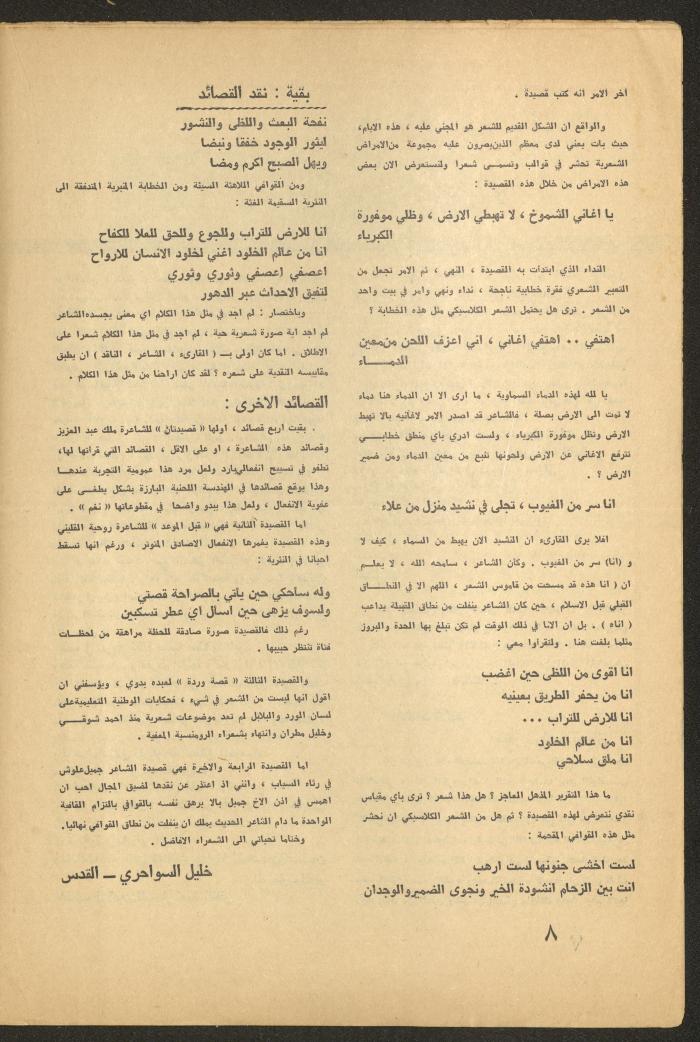 آخر الامر انه كتب قصيدة .
والواقع ان الشكل القديم للشعر هو المجني عليه ، هذه الايام،
حيث بات يعني لدى معظم الذين يصرون عليه مجموعة من الامراض
الشعرية تحشر في قوالب وتسمى شعرا ولنستعرض الان بعض
هذه الامراض من خلال هذه القصيدة :
يا اغاني الشموخ ، لا تهبطي الارض ، وظلي موفورة
الكبرياء
النداء الذي ابتدات به القصيدة ، النهي ، ثم الامر تجعل من
التعبير الشعري فقرة خطابية ناجحة ، نداء ونهي وامر في بيت واحد
من الشعر . ترى هل يحتمل الشعر الكلاسيكي مثل هذه الخطابة ؟
اهتفي .. اهتفي اغاني ، اني اعزف اللحن من معين
الدمـــاء
يا لله لهذه الدماء السماوية ، ما ارى الا ان الدماء هنا دماء
لا تمت الى الارض بصلة ، فالشاعر قد اصدر الامر لاغانيه بالا تهبط
الارض وتظل موفورة الكبرياء ، ولست ادري باي منطق خطابـــي
تترفع الاغاني عن الارض ولحونها تنبع من معين الدماء ومن ضمير
الارض ؟ .
انا سر من الغيوب ، تجلى في نشيد منزل من علاء
افلا يرى القارىء ان النشيد الان يهبط من السماء ، كيف لا
و (انا) سر من الغيوب . وكأن الشاعر ، سامحه الله ، لا يعلـــم
ان ( انا هذه قد مسحت من قاموس الشعر ، اللهم الا في النطـــاق
القبلي قبل الاسلام ، حين كان الشاعر ينفلت من نطاق القبيلة يداعب
( اناه ) . بل ان الانا في ذلك الوقت لم تكن تبلغ بها الحدة والبروز
مثلما بلغت هنا . ولتقراوا معي :
انا اقوى من اللظى حين اغضب
انا من يحفر الطريق بعينيه
انا للارض للتراب ...
انا من عالم الخلود
انا ملق سلاحي
ما هذا التقرير المذهل العاجز ؟ هل هذا شعر ؟ ترى باي مقياس
نقدي نتعرض لهذه القصيدة ؟ ثم هل من الشعر الكلاسيكي ان نحشر
مثل هذه القوافي المقحمة :
لست اخشى جنونها لست ارهب
انت بين الزحام انشودة الخير ونجوى الضمير والوجدان
بقية : نقد القصائد
نفحة البعث واللظى والنشور
ليثور الوجود خفقا ونبضا
ويهل الصبح اكرم ومضا
ومن القوافي اللاهثة السيئة ومن الخطابة المنبرية المتدفقة الى
النثرية السقيمة الغثة :
انا للارض للتراب وللجوع وللحق للعلا للكفاح
انا من عالم الخلود اغني لخلود الانسان للارواح
اعصفي اعصفي وثوري وثوري
لتفيق الاحداث عبر الدهور
وباختصار : لم اجد في مثل هذا الكلام اي معنى يجسده الشاعر
لم اجد اية صورة شعرية حية ، لم اجد في مثل هذا الكلام شعرا على
الاطلاق . اما كان اولى بــ ( القارىء ، الشاعر ، الناقد ) ان يطبق
مقاييسه النقدية على شعره ؟ لقد كان اراحنا من مثل هذا الكلام .
القصائد الاخرى :
. بقيت اربع قصائد ، اولها « قصيدتان » للشاعرة ملك عبد العزيز
وقصائد هذه الشاعرة ، او على الاقل ، القصائد التي قراتها لها،
تطفو في تسبيح انفعالي بارد ولعل مرد هذا عمومية التجربة عندهـا
وهذا يوقع قصائدها في الهندسة اللحنية البارزة بشكل يطغــى على
عفوية الانفعال ، ولعل هذا يبدو واضحا في مقطوعاتها « نغم » .
اما القصيدة الثانية فهي « قبل الموعد » للشاعرة روحية القليني
وهذه القصيدة يغمرها الانفعال الصادق المتوتر ، ورغم انها تسقط
احيانا في النثرية :
وله ساحكي حين ياتي بالصراحة قصتي
ولسوف يزهى حين اسال اي عطر تسكبين
رغم ذلك فالقصيدة صورة صادقة للحظة مراهقة من لحظـــات
فتاة تنتظر حبيبها .
والقصيدة الثالثة « قصة وردة » لعبده بدوي ، ويؤسفني ان
اقول انها ليست من الشعر في شيء ، فحكايات الوطنية التعليمية على
لسان الورد والبلابل لم تعد موضوعات شعرية منذ احمد شوقـــي
وخليل مطران وانتهاء بشعراء الرومنسية المعفية .
اما القصيدة الرابعة والاخيرة فهي قصيدة الشاعر جميل علوش
في رثاء السياب ، وانني اذ اعتذر عن نقدها لضيق المجال احب ان
اهمس في اذن الاخ جميل بالا يرهق نفسه بالقوافي بالتزام القافية
الواحدة ما دام الشاعر الحديث يملك ان ينفلت من نطاق القوافي نهائيا.
وختاما تحياتي الى الشعراء الافاضل .
خليل السواحري ــ القدس
٨